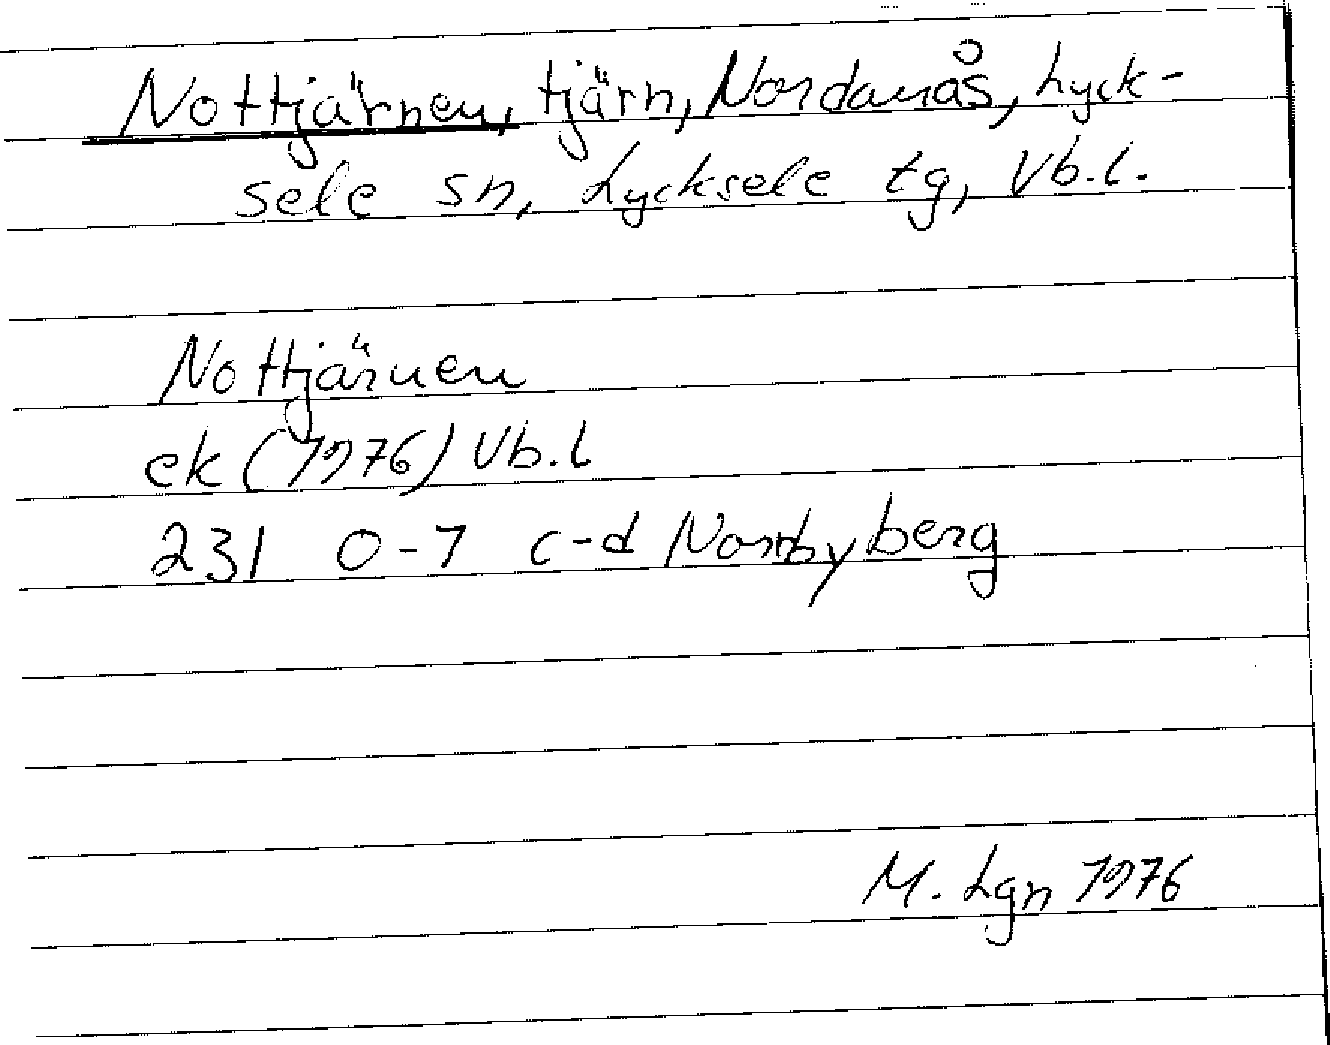 Nottjärnen, tjärn, Nordanås, Lyck-
sele sn, Lycksele tg, Vb.l.
Nottjärnen
ek (1976) Vb.l
231 0-7 c-d Norrbyberg
M. Lgn 1976